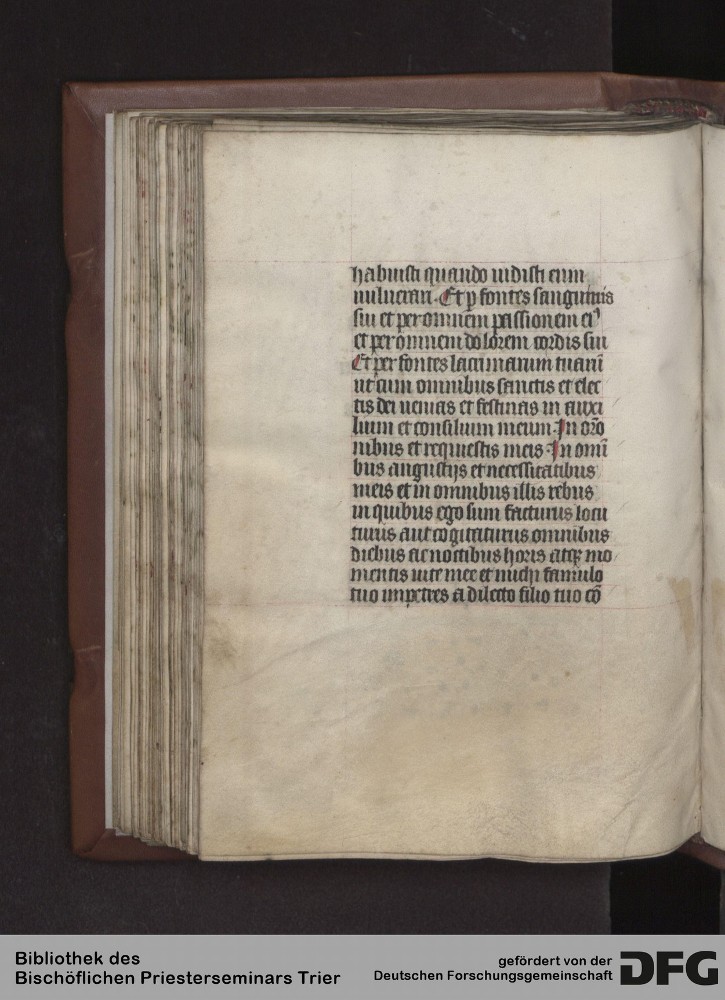 habuisti quando uidisti eum
uulnerari. Et ꝑ fontes sanguinis
sui et per omnem passionem eiꝰ
et per omnem dolorem cordis sui
Et per fontes lacrimarum tuarū
ut cum omnibus sanctis et elec
tis dei uenias et festinas in auxi
lium et consilium meum. In orō
nibus et requestis meis. In omi
bus angustijs et necessitatibus
meis et in omnibus illis rebus
in quibus ego sum facturus locu
turus aut cogitaturus omnibus
diebus ac noctibus horis atqꝫ mo
mentis uite mee et michi famulo
tuo impetres a dilecto filio tuo cō
Bibliothek des
Bischöflichen Priesterseminars Trier
gefördert von der
Deutschen Forschungsgemeinschaft
DFG